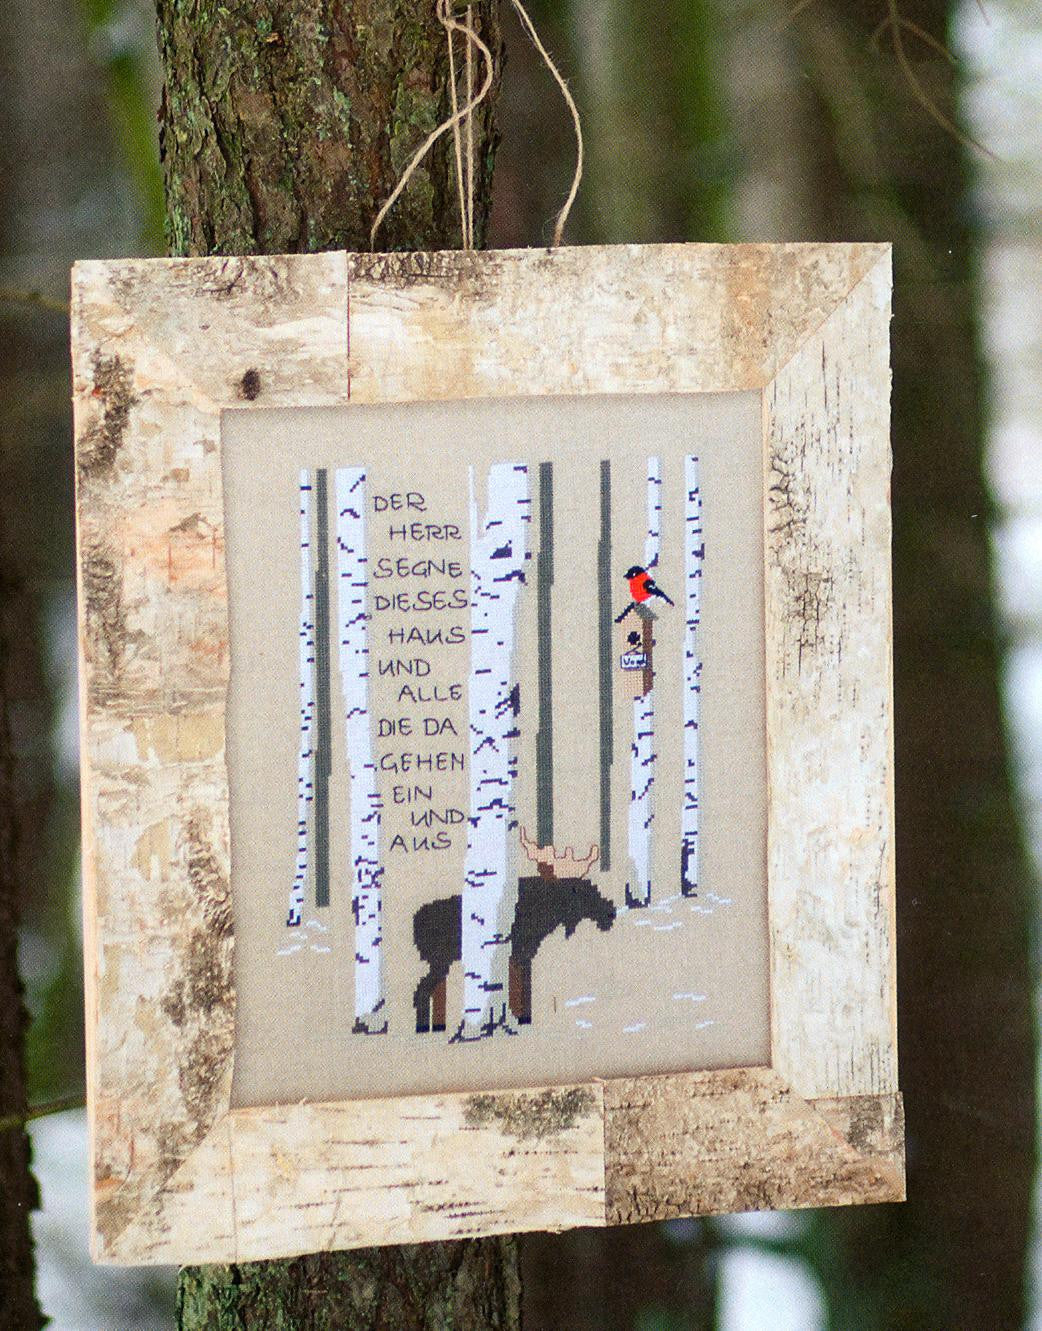 DER
HERR
SEGNE
DIESES
HAUS
UND
ALLE
DIE DA
GEHEN
EIN
UND
AUS